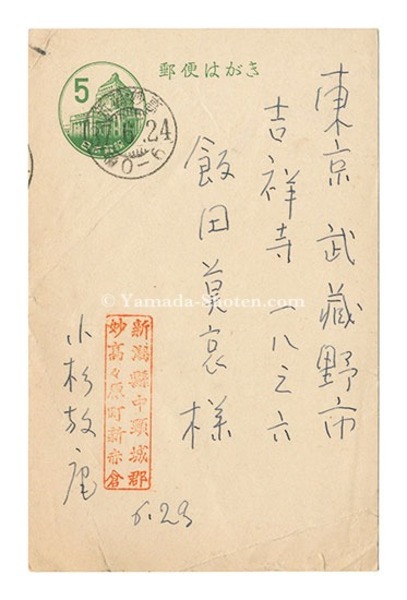 郵便はがき
5
日本郵便
24
東京 武蔵野市
吉祥寺 一八之六
飯田莫哀様
© Yamada-Shoten.com
新潟縣中頸城郡
妙高々原町新赤倉
小杉放庵
6.23